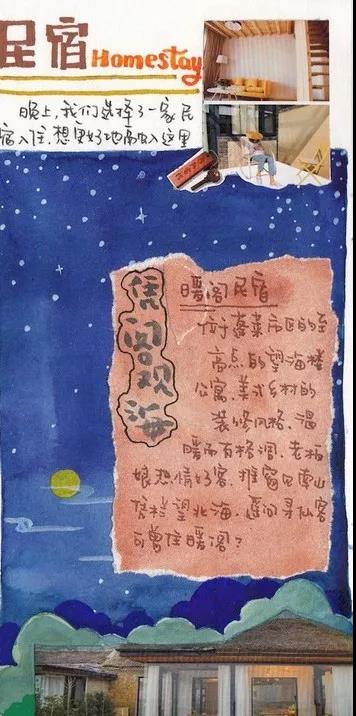 民宿 Homestay
晚上,我们选择了一家民
宿入住,想更好地融入这里
凭阁观海
暖阁民宿
位于蓬莱市区的至
高点的望海楼
公寓,美式乡村的
装修风格,温
暖而有格调,老板
娘热情好客,推窗见南山
凭栏望北海,遥问寻仙客
可曾住暖阁?